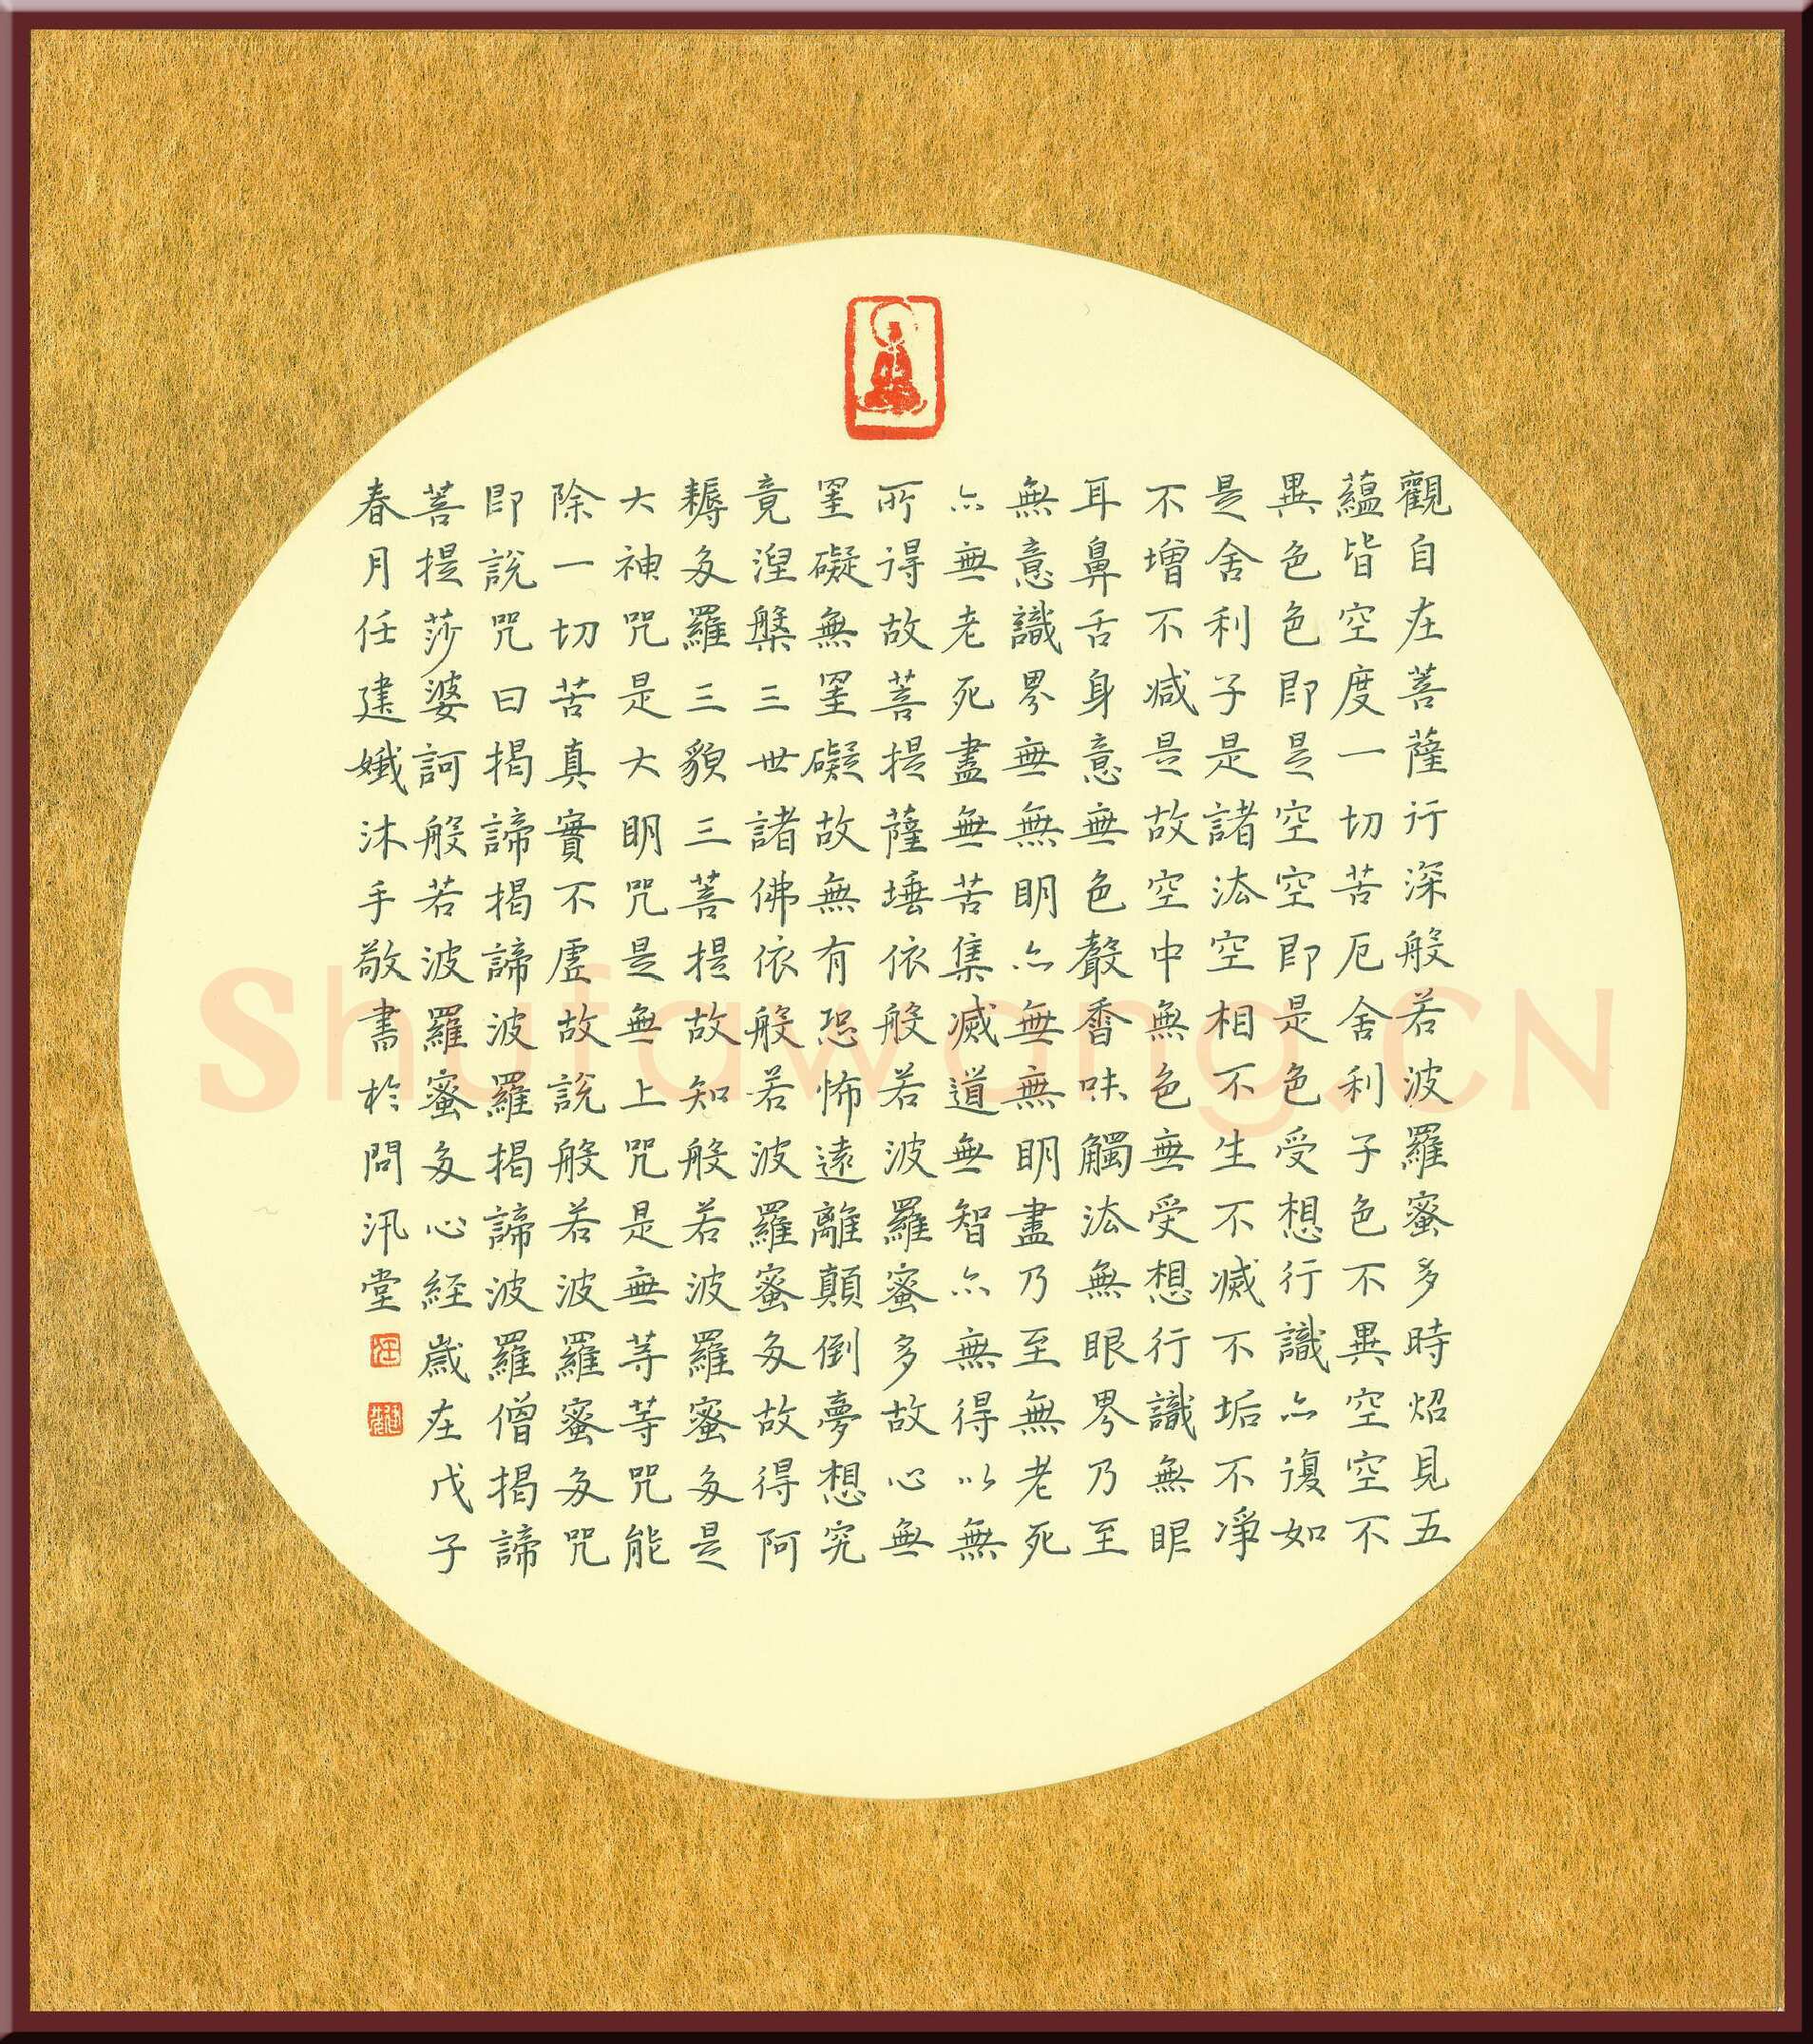 觀自在菩薩行深般若波羅蜜多時炤見五
蘊皆空度一切苦厄舍利子色不異空空不
異色色即是空空即是色受想行識亦復如
是舍利子是諸法空相不生不滅不垢不淨
不增不減是故空中無色無受想行識無眼
耳鼻舌身意無色聲香味觸法無眼界乃至
無意識界無無明亦無無明盡乃至無老死
亦無老死盡無苦集滅道無智亦無得以無
所得故菩提薩埵依般若波羅蜜多故心無
罣礙無罣礙故無有恐怖遠離顛倒夢想究
竟涅槃三世諸佛依般若波羅蜜多故得阿
耨多羅三藐三菩提故知般若波羅蜜多是
大神咒是大明咒是無上咒是無等等咒能
除一切苦真實不虛故說般若波羅蜜多咒
即說咒曰揭諦揭諦波羅揭諦波羅僧揭諦
菩提莎婆訶般若波羅蜜多心經歲在戊子
春月任建孅沐手敬書於問汛堂
Shufawang.CN